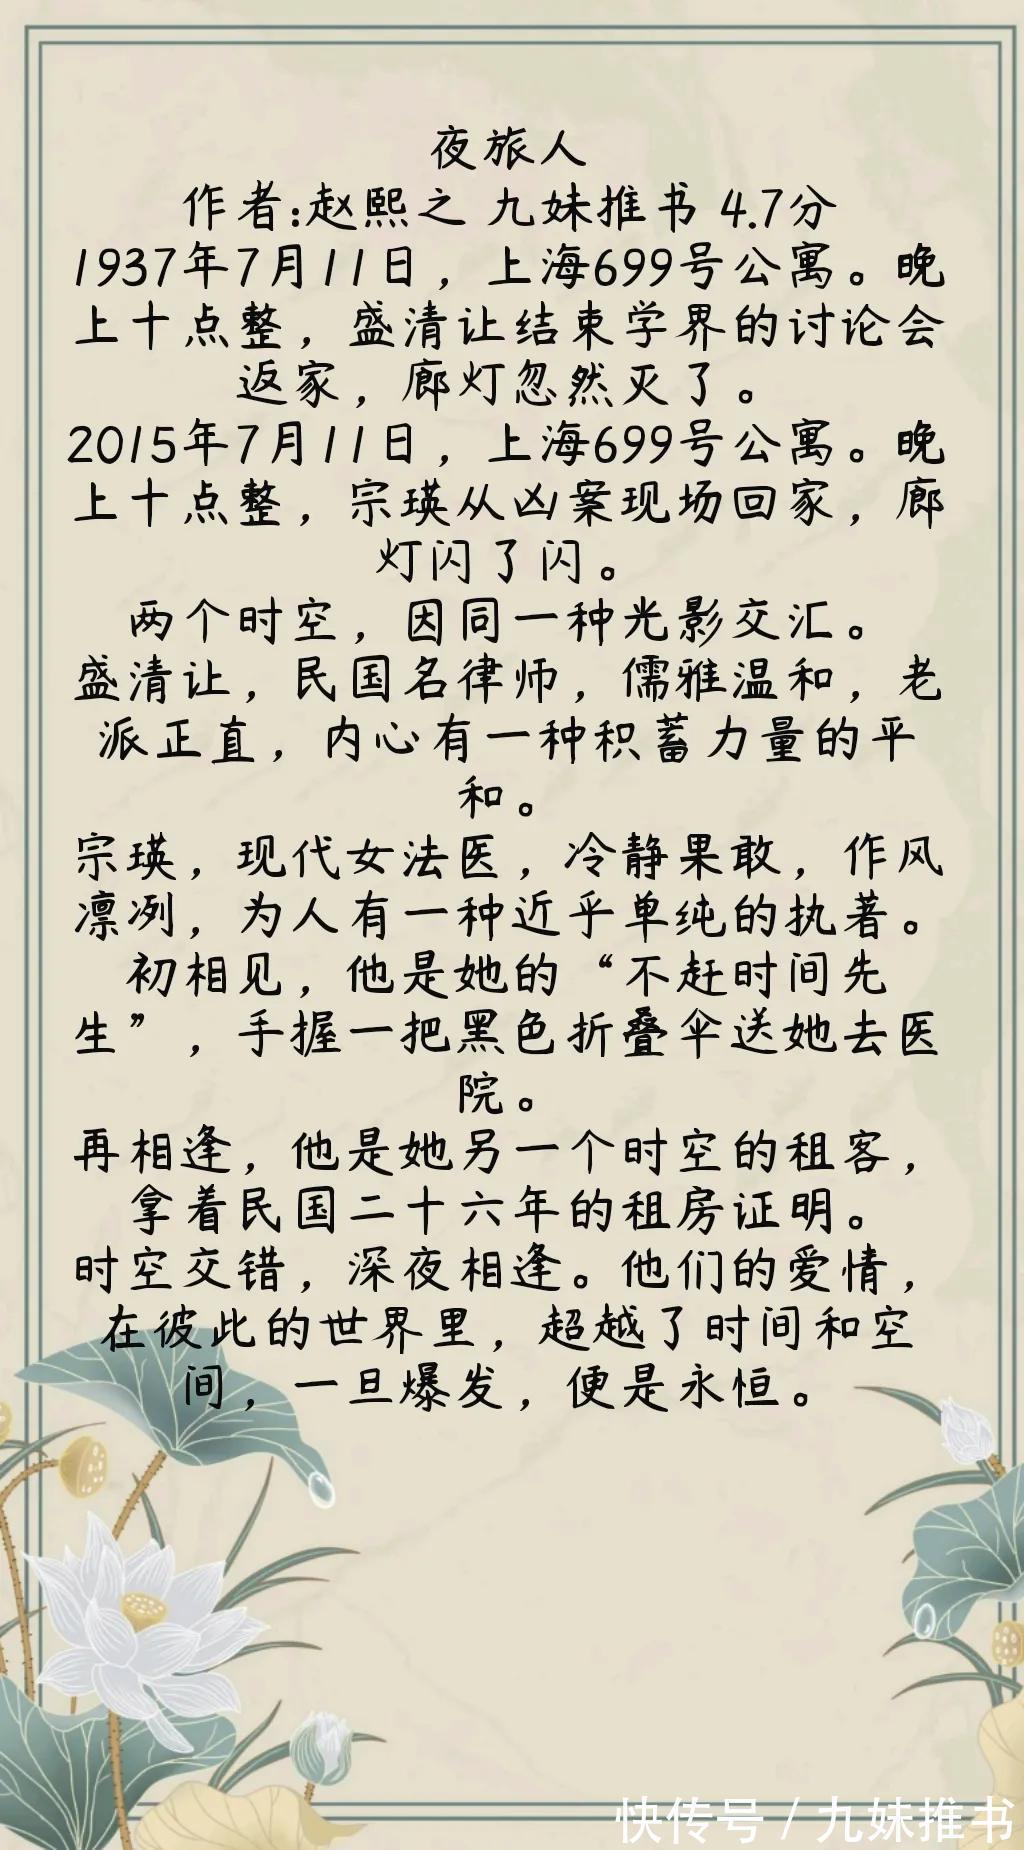 夜旅人
作者:赵熙之 九妹推书 4.7分
1937年7月11日，上海699号公寓。晚
上十点整，盛清让结束学界的讨论会
返家，廊灯忽然灭了。
2015年7月11日，上海699号公寓。晚
上十点整，宗瑛从凶案现场回家，廊
灯闪了闪。
两个时空，因同一种光影交汇。
盛清让，民国名律师，儒雅温和，老
派正直，内心有一种积蓄力量的平
和。
宗瑛，现代女法医，冷静果敢，作风
凛冽，为人有一种近乎单纯的执著。
初相见，他是她的“不赶时间先
生”，手握一把黑色折叠伞送她去医
院。
再相逢，他是她另一个时空的租客，
拿着民国二十六年的租房证明。
时空交错，深夜相逢。他们的爱情，
在彼此的世界里，超越了时间和空
间，一旦爆发，便是永恒。
快传号 / 九妹推书